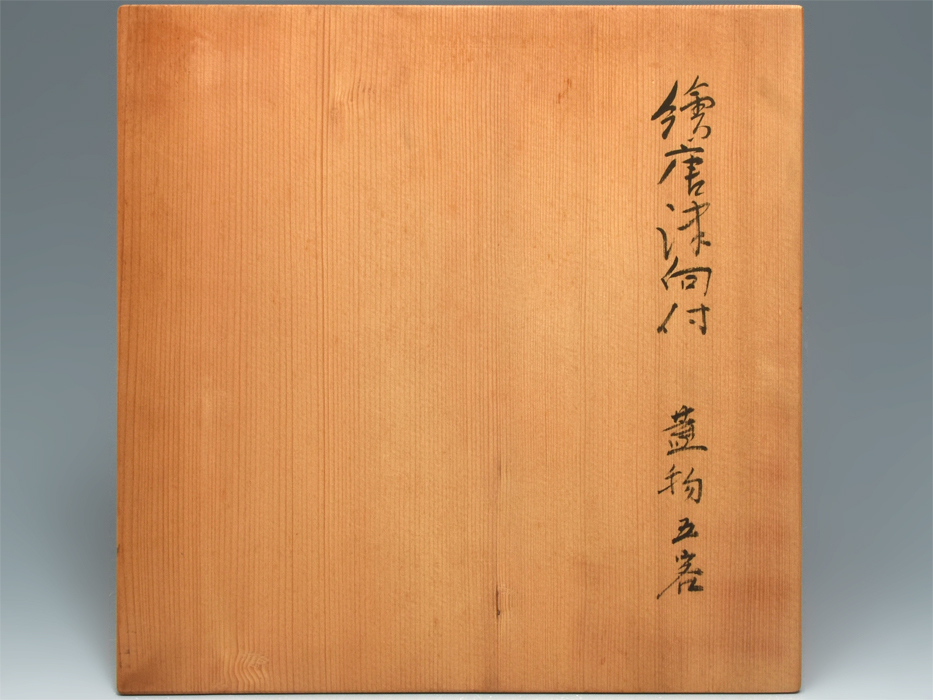 繪唐津向付　蓋物五客